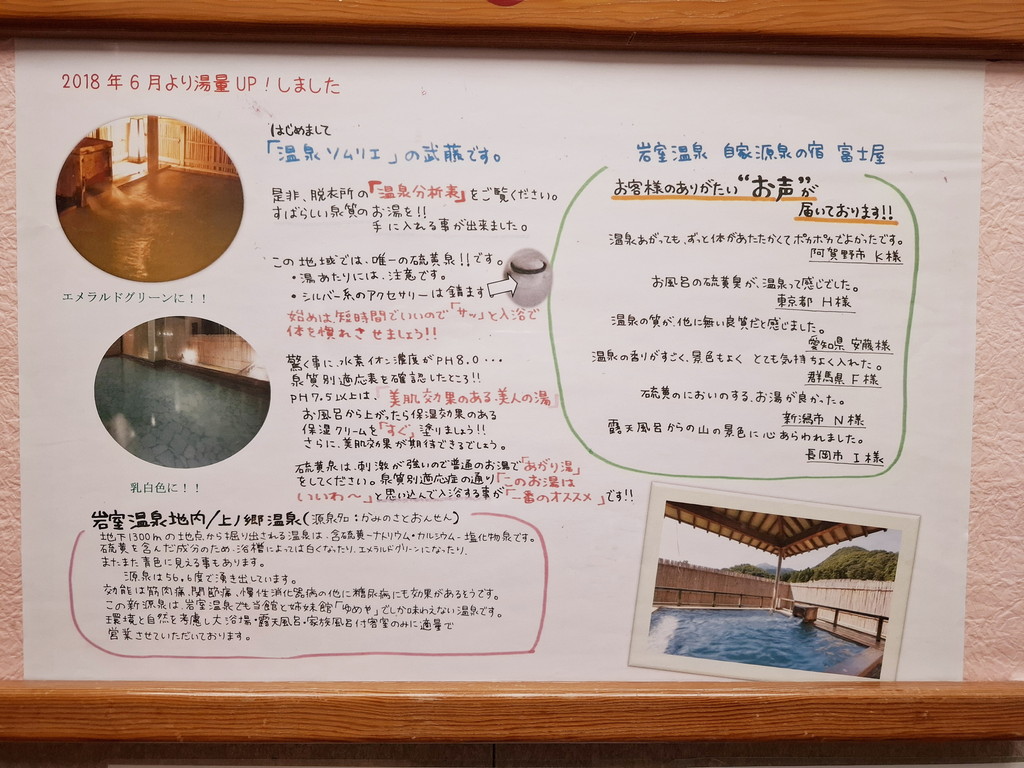 2018年6月より湯量UP！しました
エメラルドグリーンに！！
乳白色に！！
はじめまして
「温泉ソムリエ」の武藤です。
是非、脱衣所の「温泉分析表」をご覧ください。
すばらしい泉質のお湯を!!
手に入れる事が出来ました。
この地域では、唯一の硫黄泉!!です。
・湯あたりには、注意です。
・シルバー系のアクセサリーは錆ます
始めは短時間でいいので「サッ」と入浴で
体を慣れさせましょう!!
驚く事に、水素イオン濃度がPH8.0・・・
泉質別適応表を確認したところ!!
PH7.5以上は、「美肌効果のある美人の湯」
お風呂から上がったら保湿効果のある
保湿クリームを「すぐ」塗りましょう!!
さらに、美肌効果が期待できるでしょう。
硫黄泉は、刺激が強いので普通のお湯で「あがり湯」
をしてください。泉質別適応症の通り「このお湯は
いいわ〜」と思い込んで入浴する事が「一番のオススメ」です!!
岩室温泉 自家源泉の宿 富士屋
お客様のありがたい“お声”が
届いております!!
温泉あがっても、ずっと体があたたかくてポカポカでよかったです。
阿賀野市 K様
お風呂の硫黄臭が、温泉って感じでした。
東京都 H様
温泉の質が、他に無い良質だと感じました。
愛知県 安藤様
温泉の香りがすごく、景色もよく とても気持ちよく入れた。
群馬県 F様
硫黄のにおいのする、お湯が良かった。
新潟市 N様
露天風呂からの山の景色に心あらわれました。
長岡市 I様
岩室温泉地内/上ノ郷温泉(源泉名：かみのさとおんせん)
地下1300mの地点から掘り出される温泉は、含硫黄ーナトリウム・カルシウム-塩化物泉です。
硫黄を含んだ成分のため、浴槽によっては白くなったり、エメラルドグリーンになったり、
またまた青色に見える事もあります。
源泉は56.6度で湧き出しています。
効能は筋肉痛、関節痛、慢性消化器病の他に糖尿病にも効果があるそうです。
この新源泉は、岩室温泉でも当館と姉妹館「ゆめや」でしか味わえない温泉です。
環境と自然を考慮し大浴場・露天風呂・家族風呂付客室のみに適量で
営業させていただいております。